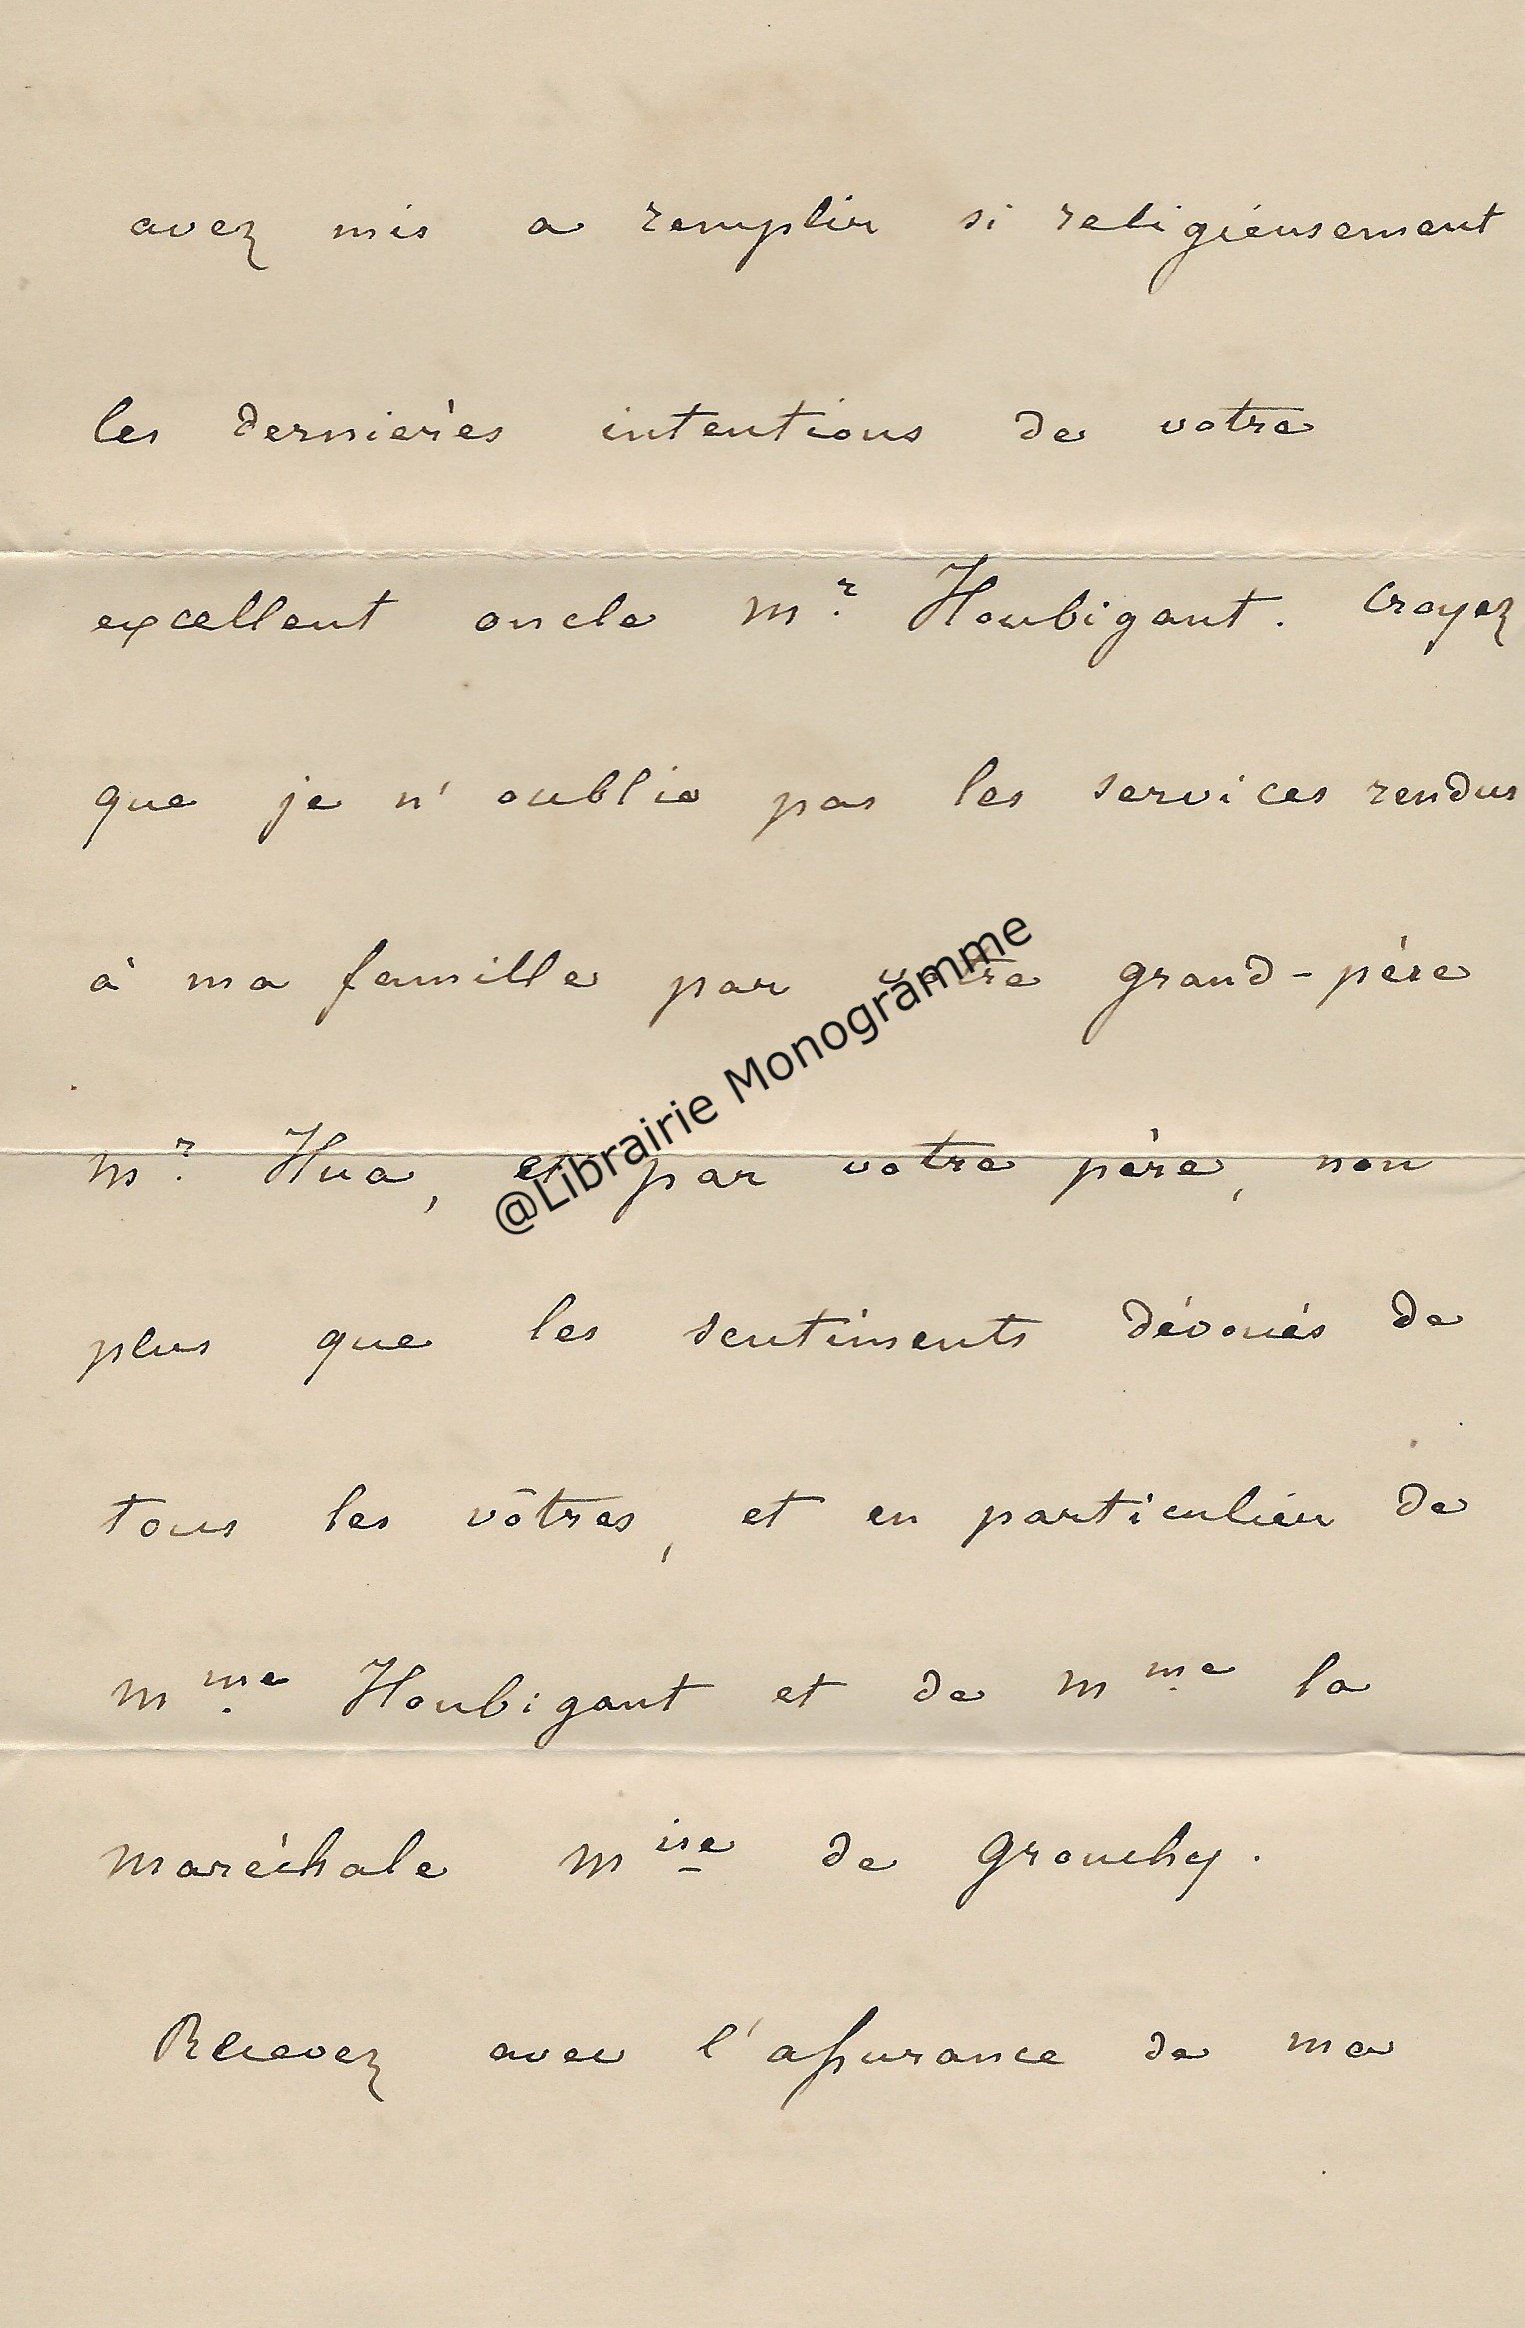 avez mis a remplir si religieusement
les dernières intentions de votre
excellent oncle Mr. Houbigant. Croyez
que je n'oublie pas les services rendus
à ma famille par votre grand-père
Mr. Hua, et par votre père, non
plus que les sentiments dévoués de
tous les vôtres, et en particulier de
Mme. Houbigant et de Mme. la
Maréchale Mise de Grouchy.
Recevez avec l'assurance de ma
@Librairie Monogramme